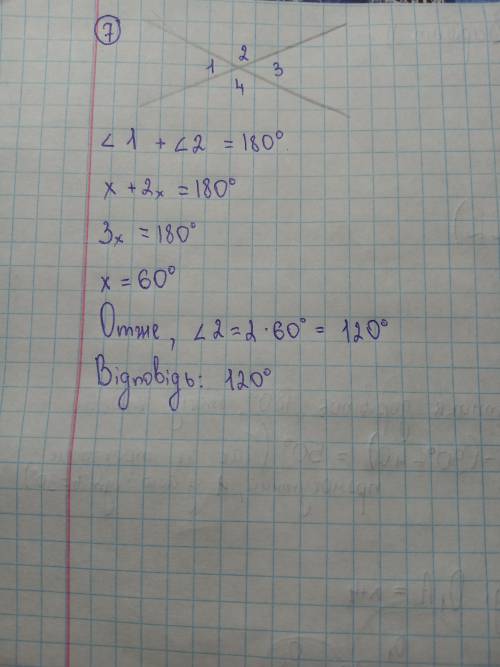 7
2
1 3
4
∠1 + ∠2 = 180°
x + 2x = 180°
3x = 180°
x = 60°
Отже, ∠2 = 2 · 60° = 120°
Відповідь: 120°